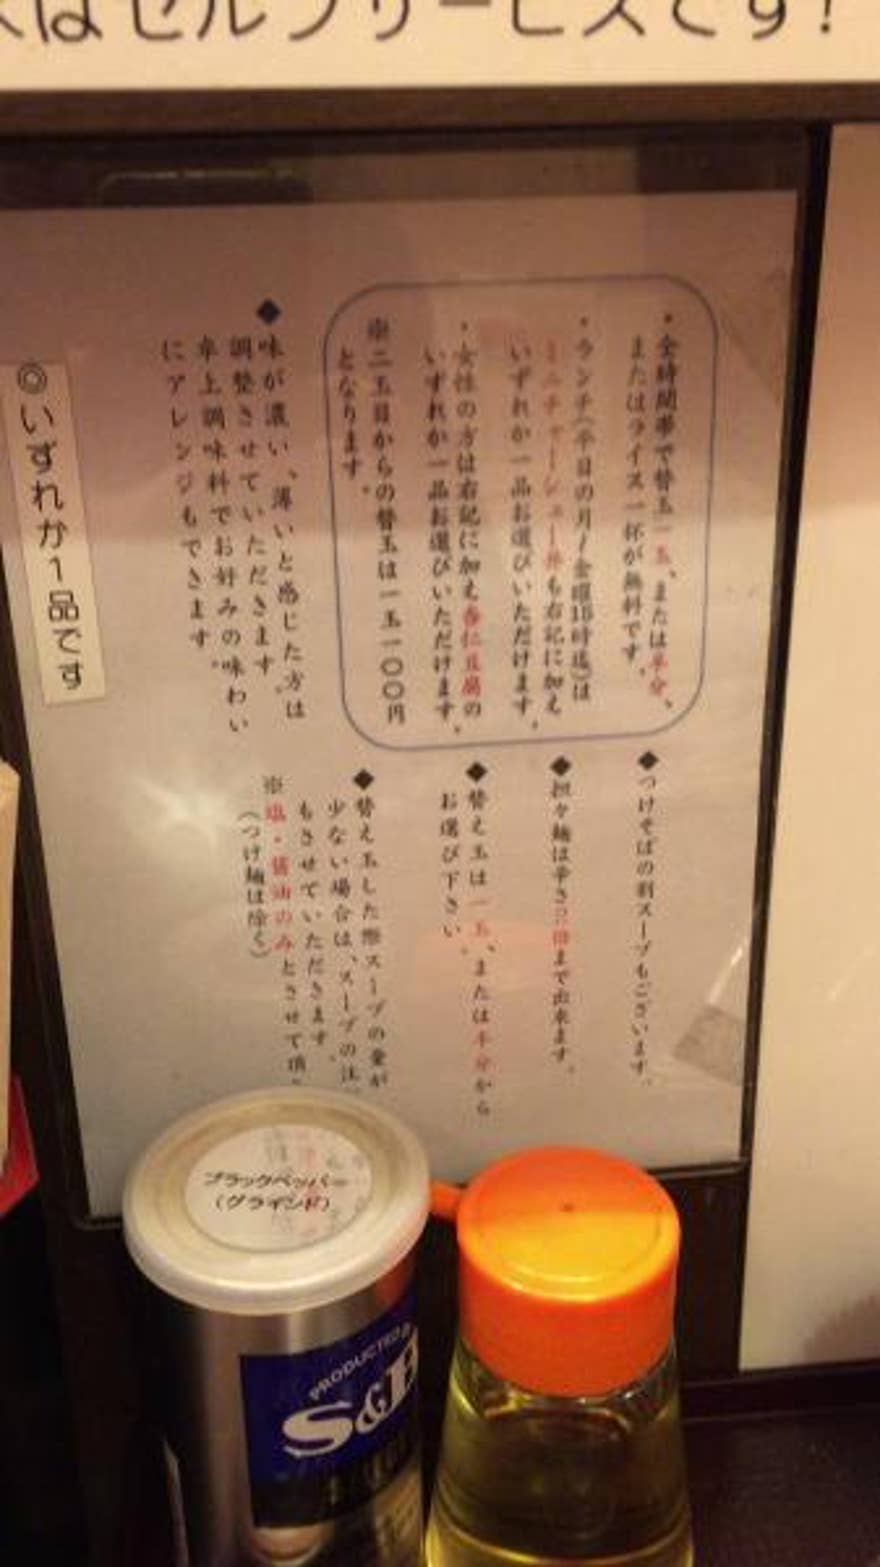 はセルフサービスです!
・全時間帯で替玉一玉、または半分、
またはライス一杯が無料です。
・ランチ(平日の月~金曜15時迄)は
ミニチャーシュー丼も右記に加え
いずれか一品お選びいただけます。
・女性の方は右記に加え杏仁豆腐の
いずれか一品お選びいただけます。
※二玉目からの替玉は一玉一〇〇円
となります。
◆味が濃い、薄いと感じた方は
調整させていただきます。
卓上調味料でお好みの味わい
にアレンジもできます。
◎いずれか1品です
◆つけそばの割スープもございます。
◆担々麺は辛さ
まで出来ます。
◆替え玉は一玉、または半分から
お選び下さい。
◆替え玉した際スープの量が
少ない場合は、スープの注
もさせていただきます。
※塩・醤油のみとさせて頂
(つけ麺は除く)
ブラックペッパー
(グラインド)
PRODUCED
S&B